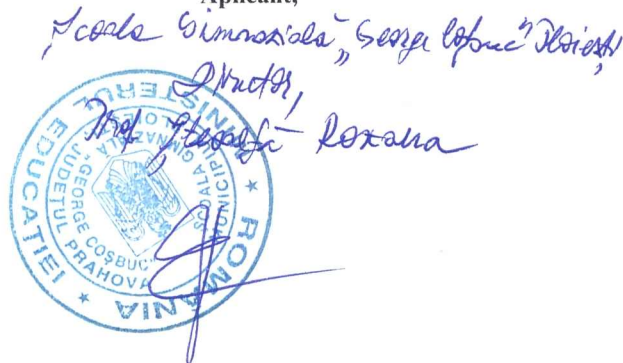 Aplicant,
Școala Gimnazială „George Coșbuc” Ploiești
Director,
Prof. Roxana
ROMÂNIA * MINISTERUL EDUCAȚIEI *
ȘCOALA GIMNAZIALĂ „GEORGE COȘBUC”
MUNICIPIUL PLOIEȘTI
JUDEȚUL PRAHOVA